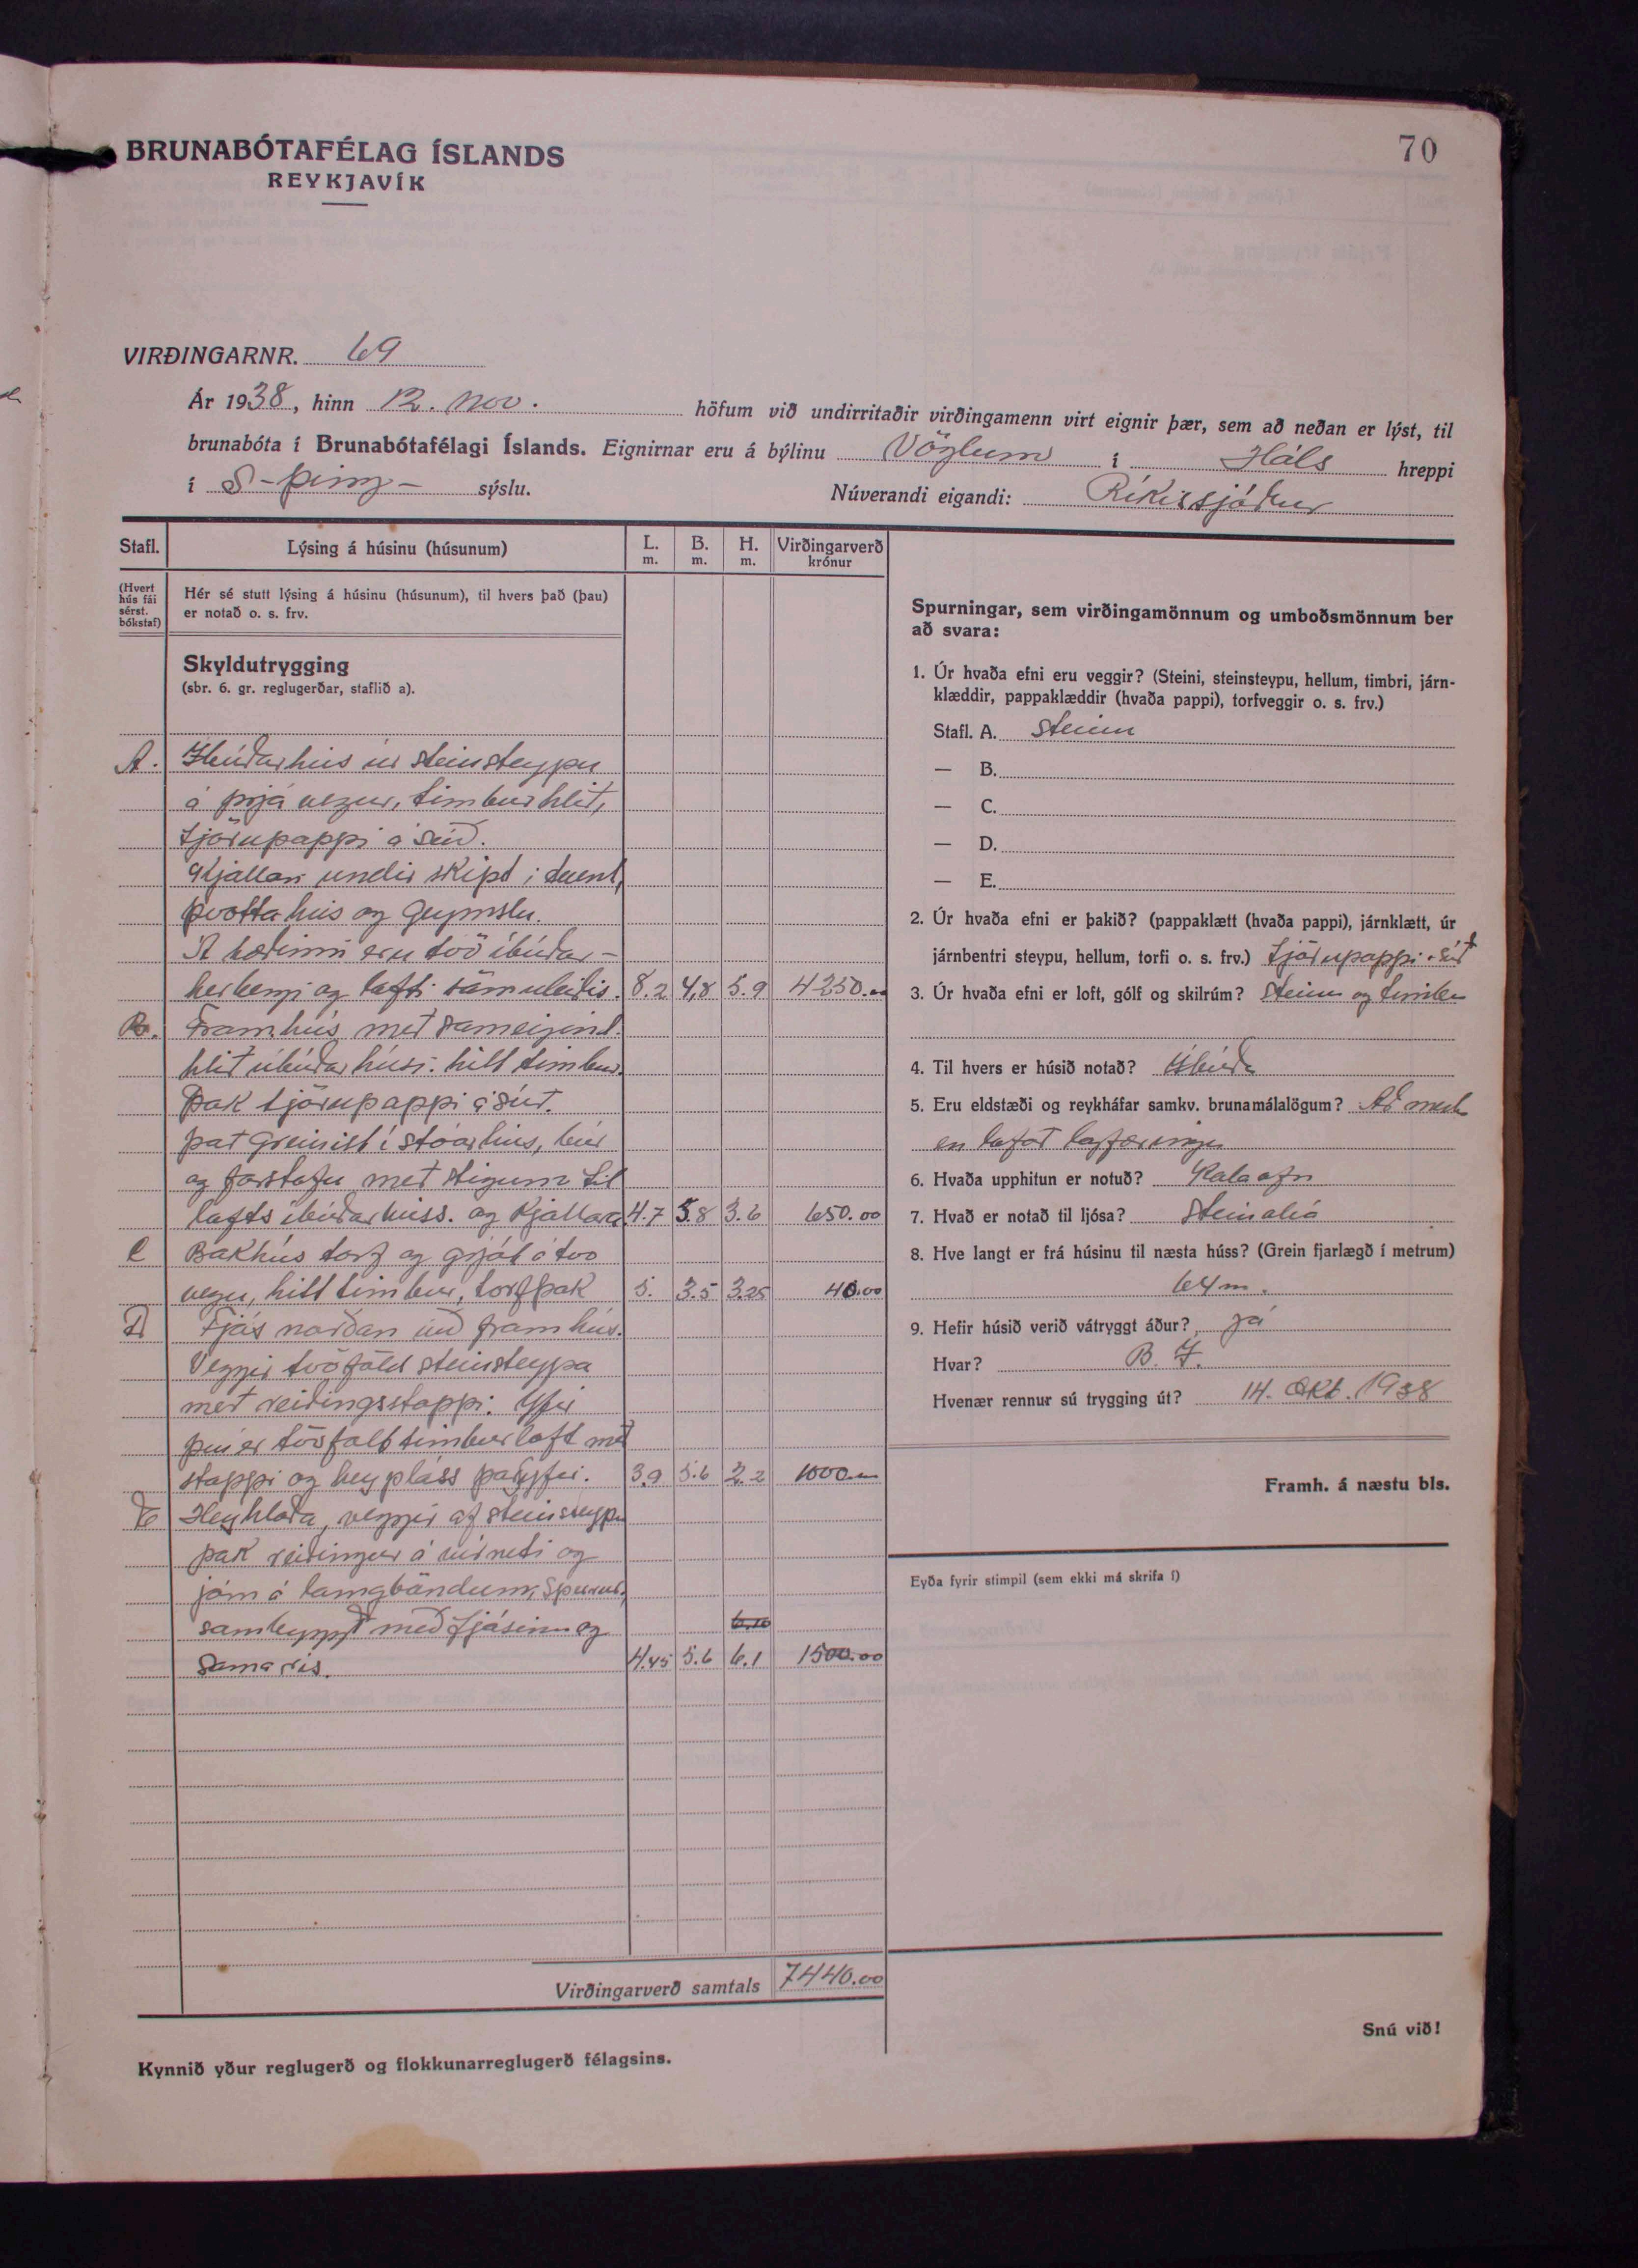 70
BRUNABÓTAFÉLAG ÍSLANDS
REYKJAVÍK
VIRÐINGARNR. 69
Ár 1938, hinn 12. nov. höfum við undirritaðir virðingamenn virt eignir þær, sem að neðan er lýst, til
brunabóta í Brunabótafélagi Íslands. Eignirnar eru á býlinu Vöglum í Háls hreppi
í S-þing- sýslu. Núverandi eigandi: Ríkissjóður
Stafl. Lýsing á húsinu (húsunum) L. m. B. m. H. m. Virðingarverð krónur
(Hvert hús fái sérst. bókstaf)
Hér sé stutt lýsing á húsinu (húsunum), til hvers það (þau)
er notað o. s. frv.
Skyldutrygging
(sbr. 6. gr. reglugerðar, staflið a).
A. Íbúðarhús úr steinsteypu
á þrjá vegur, timburhlið,
tjörupappi á súð.
Kjallari undir skipt í tvent,
þvottahús og geymslu.
Á hæðinni eru tvö íbúðar-
herbergi og lofti sömuleiðis. 8.2 4,8 5.9 4250.00
B. Framhús með sameigind.
hlið íbúðarhúsi. hitt timbur.
Þak tjörupappi á súð.
það greinist í stóarhús, búr
og forstofu með stigum til
lofts íbúðarhúss. og kjallara 4.7 3.8 3.6 650.00
C Bakhús torf og grjót á tvo
vegu, hitt timbur, torfþak 5. 3.5 3.25 40.00
D Fjós norðan við framhús.
Veggir tvöföld steinsteypa
með reiðingsstoppi. Yfir
því er tvöfalt timburloft með
stoppi og heypláss þar yfir. 3.9 5.6 2.2 1000.00
E Heyhlaða, veggir af steinsteypu
þak reiðingur á vírneti og
járn á langböndum, Sperrur,
sambyggð með fjósinu og 6.10
sama ris. 4.45 5.6 6.1 1500.00
Virðingarverð samtals 7440.00
Kynnið yður reglugerð og flokkunarreglugerð félagsins.
Spurningar, sem virðingamönnum og umboðsmönnum ber
að svara:
1. Úr hvaða efni eru veggir? (Steini, steinsteypu, hellum, timbri, járn-
klæddir, pappaklæddir (hvaða pappi), torfveggir o. s. frv.)
Stafl. A. Steinn
— B.
— C.
— D.
— E.
2. Úr hvaða efni er þakið? (pappaklætt (hvaða pappi), járnklætt, úr
járnbentri steypu, hellum, torfi o. s. frv.) Tjörupappi á súð
3. Úr hvaða efni er loft, gólf og skilrúm? Steinn og timbur
4. Til hvers er húsið notað? Íbúðar
5. Eru eldstæði og reykháfar samkv. brunamálalögum? Að mestu
en lofað lagfæringu
6. Hvaða upphitun er notuð? Kola ofn
7. Hvað er notað til ljósa? Steinolía
8. Hve langt er frá húsinu til næsta húss? (Grein fjarlægð í metrum)
64 m.
9. Hefir húsið verið vátryggt áður? Já
Hvar? B. Í.
Hvenær rennur sú trygging út? 14. Okt. 1938
Framh. á næstu bls.
Eyða fyrir stimpil (sem ekki má skrifa í)
Snú við!